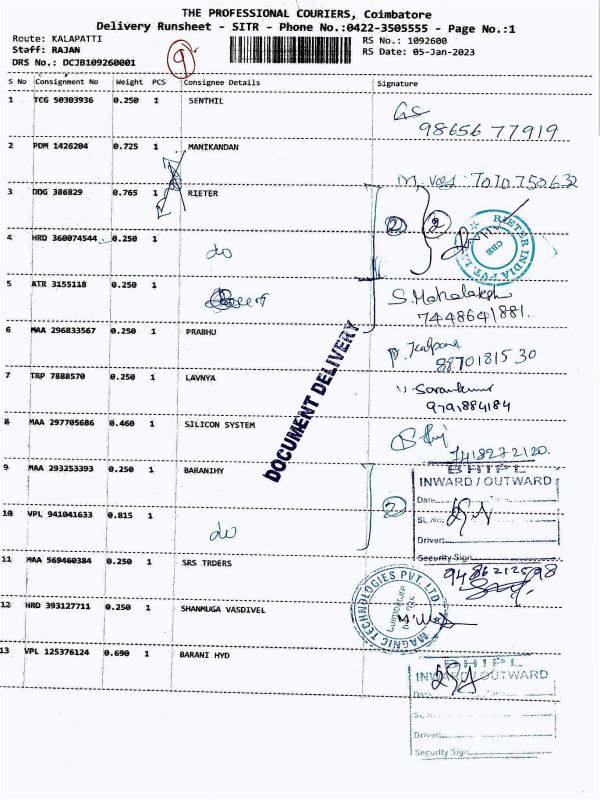 THE PROFESSIONAL COURIERS, Coimbatore
Delivery Runsheet - SITR - Phone No.:0422-3505555 - Page No.:1
Route: KALAPATTI
Staff: RAJAN
DRS No.: DCJB109260001
9
RS No.: 1092600
RS Date: 05-Jan-2023
S No Consignment No Weight PCS Consignee Details Signature
1 TCG 50303936 0.250 1 SENTHIL
98656 77919
2 PDM 1426204 0.725 1 MANIKANDAN
7070750632
3 DDG 386829 0.765 1 RIETER
2 2
RIETER INDIA PVT. LTD
CBE
4 HRD 360074544 0.250 1 do
5 ATR 3155118 0.250 1
S. Mahalakshmi
7448641881
6 MAA 296833567 0.250 1 PRABHU
P. Kalpana
8870181530
7 TRP 7888570 0.250 1 LAVNYA
Saravanakumar
9791884184
DOCUMENT DELIVERY
8 MAA 297705686 0.460 1 SILICON SYSTEM
7418272120
9 MAA 293253393 0.250 1 BARANIHY
2
BHIPL
INWARD / OUTWARD
Date
SL.No.
Driver
Security Sign
10 VPL 941041633 0.815 1 do
11 MAA 569460384 0.250 1 SRS TRDERS
12 HRD 393127711 0.250 1 SHANMUGA VASDIVEL
MAGNIC TECHNOLOGIES PVT. LTD
Coimbatore
13 VPL 125376124 0.690 1 BARANI HYD
BHIPL
INWARD / OUTWARD
Date
SL.No.
Driver
Security Sign